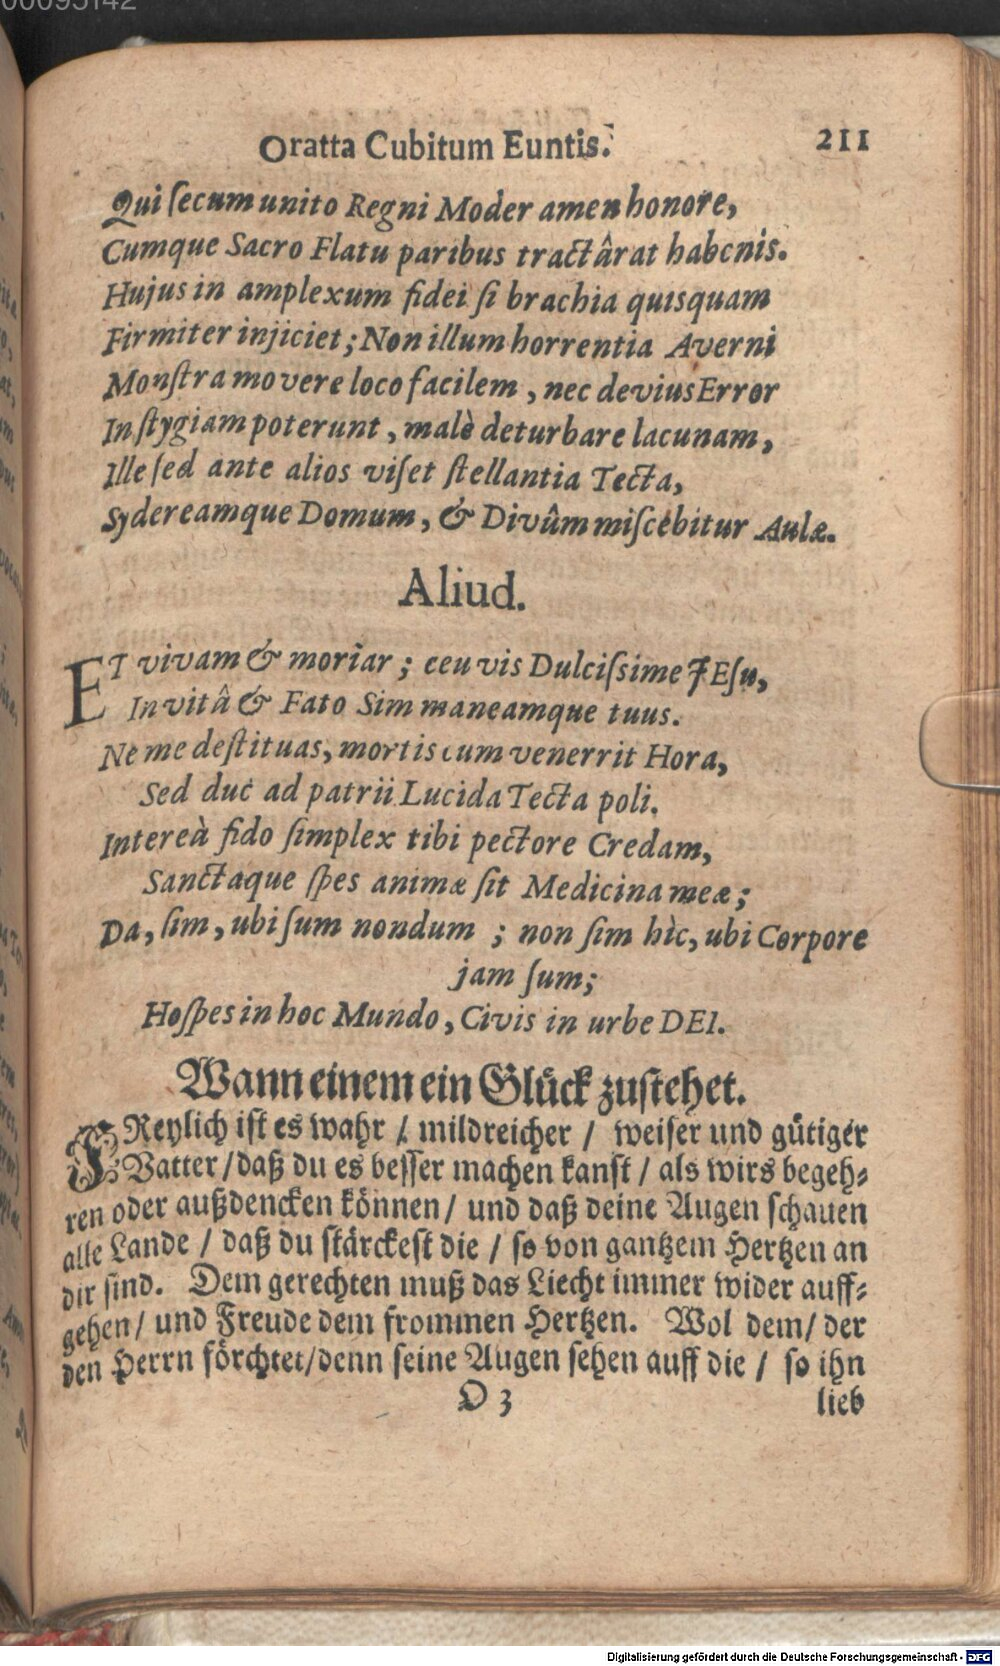 00095142
Oratta Cubitum Euntis. 211
Qui ſecum unito Regni Moderamen honore,
Cumque Sacro Flatu paribus tractârat habenis.
Hujus in amplexum fidei ſi brachia quisquam
Firmiter injiciet; Non illum horrentia Averni
Monſtra movere loco facilem, nec devius Error
In ſtygiam poterunt, malè deturbare lacunam,
Ille ſed ante alios viſet ſtellantia Tecta,
Sydereamque Domum, & Divûm miſcebitur Aulæ.
Aliud.
ET vivam & moriar; ceu vis Dulciſsime JEſu,
In vitâ & Fato Sim maneamque tuus.
Ne me deſtituas, mortis cum venerrit Hora,
Sed duc ad patrii Lucida Tecta poli.
Intereà fido ſimplex tibi pectore Credam,
Sanctaque ſpes animæ ſit Medicina meæ;
Da, ſim, ubi ſum nondum; non ſim hìc, ubi Corpore
jam ſum;
Hoſpes in hoc Mundo, Civis in urbe DEI.
Wann einem ein Glück zuſtehet.
FReylich iſt es wahr / mildreicher / weiſer und gütiger
Vatter / daß du es beſſer machen kanſt / als wirs begeh-
ren oder außdencken können / und daß deine Augen ſchauen
alle Lande / daß du ſtärckeſt die / ſo von gantzem Hertzen an
dir ſind. Dem gerechten muß das Liecht immer wider auff-
gehen / und Freude dem frommen Hertzen. Wol dem / der
den Herrn förchtet / denn ſeine Augen ſehen auff die / ſo ihn
O 3 lieb
Digitalisierung gefördert durch die Deutsche Forschungsgemeinschaft - DFG